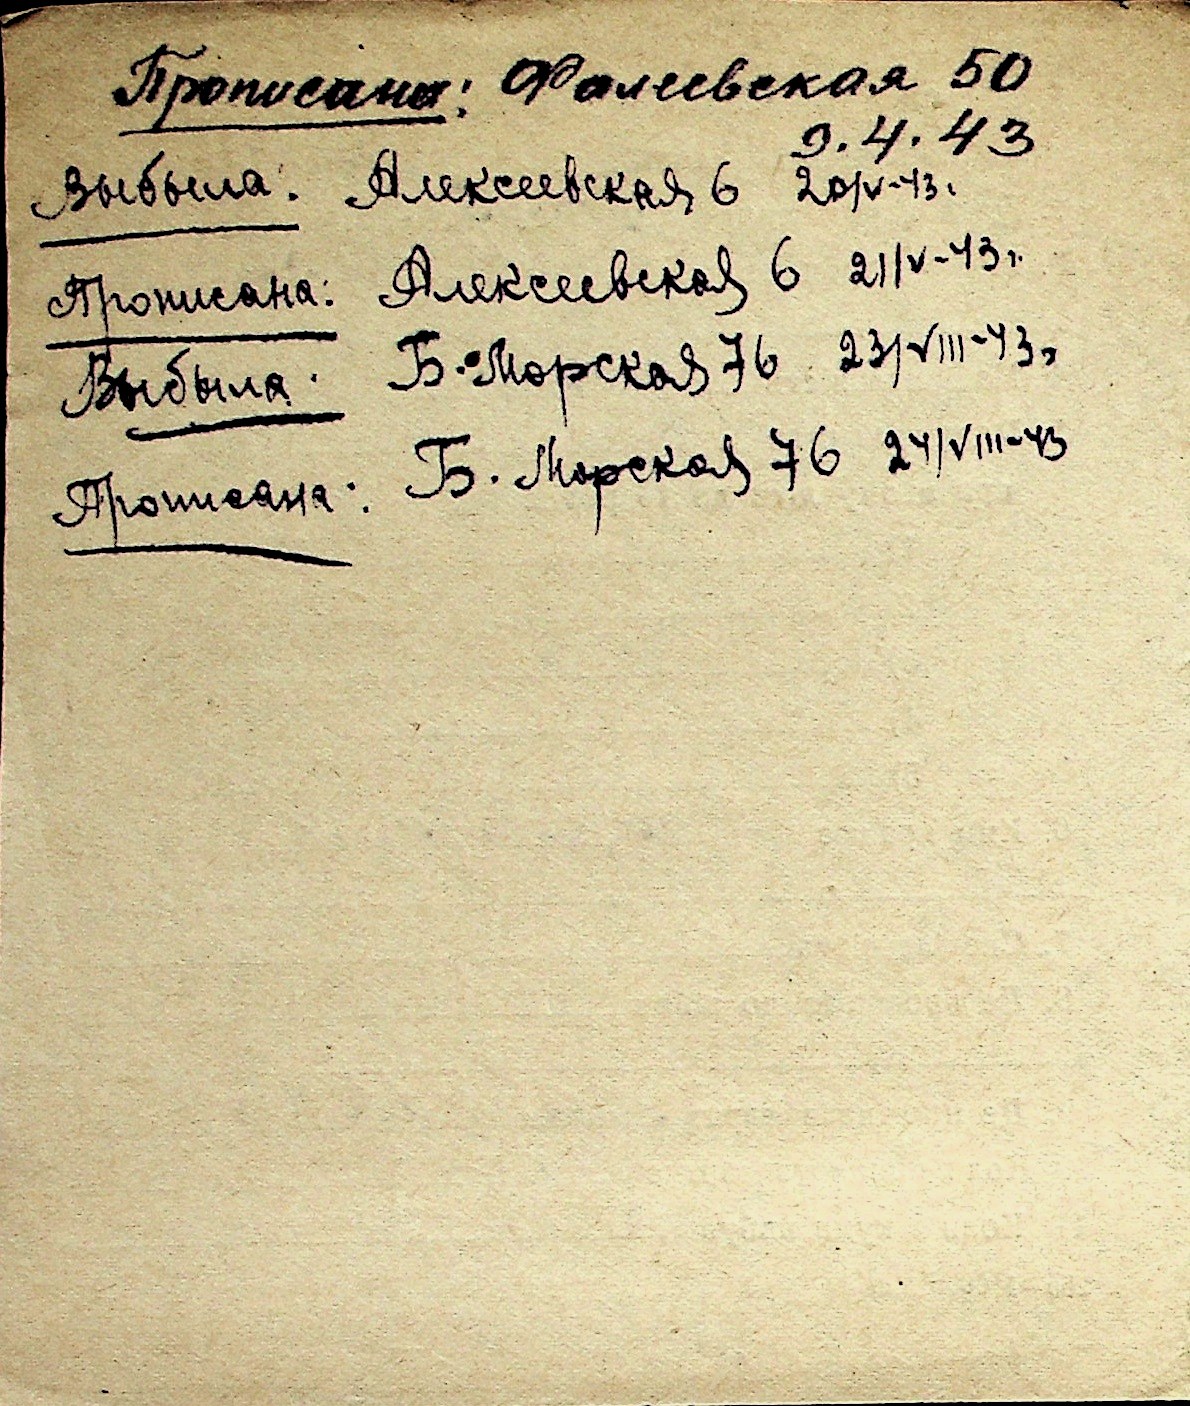 Прописана: Фалеевская 50
9.4.43
Выбыла: Алексеевская 6 20/V-43г.
Прописана: Алексеевская 6 21/V-43г.
Выбыла: Б. Морская 76 23/VIII-43г.
Прописана: Б. Морская 76 24/VIII-43